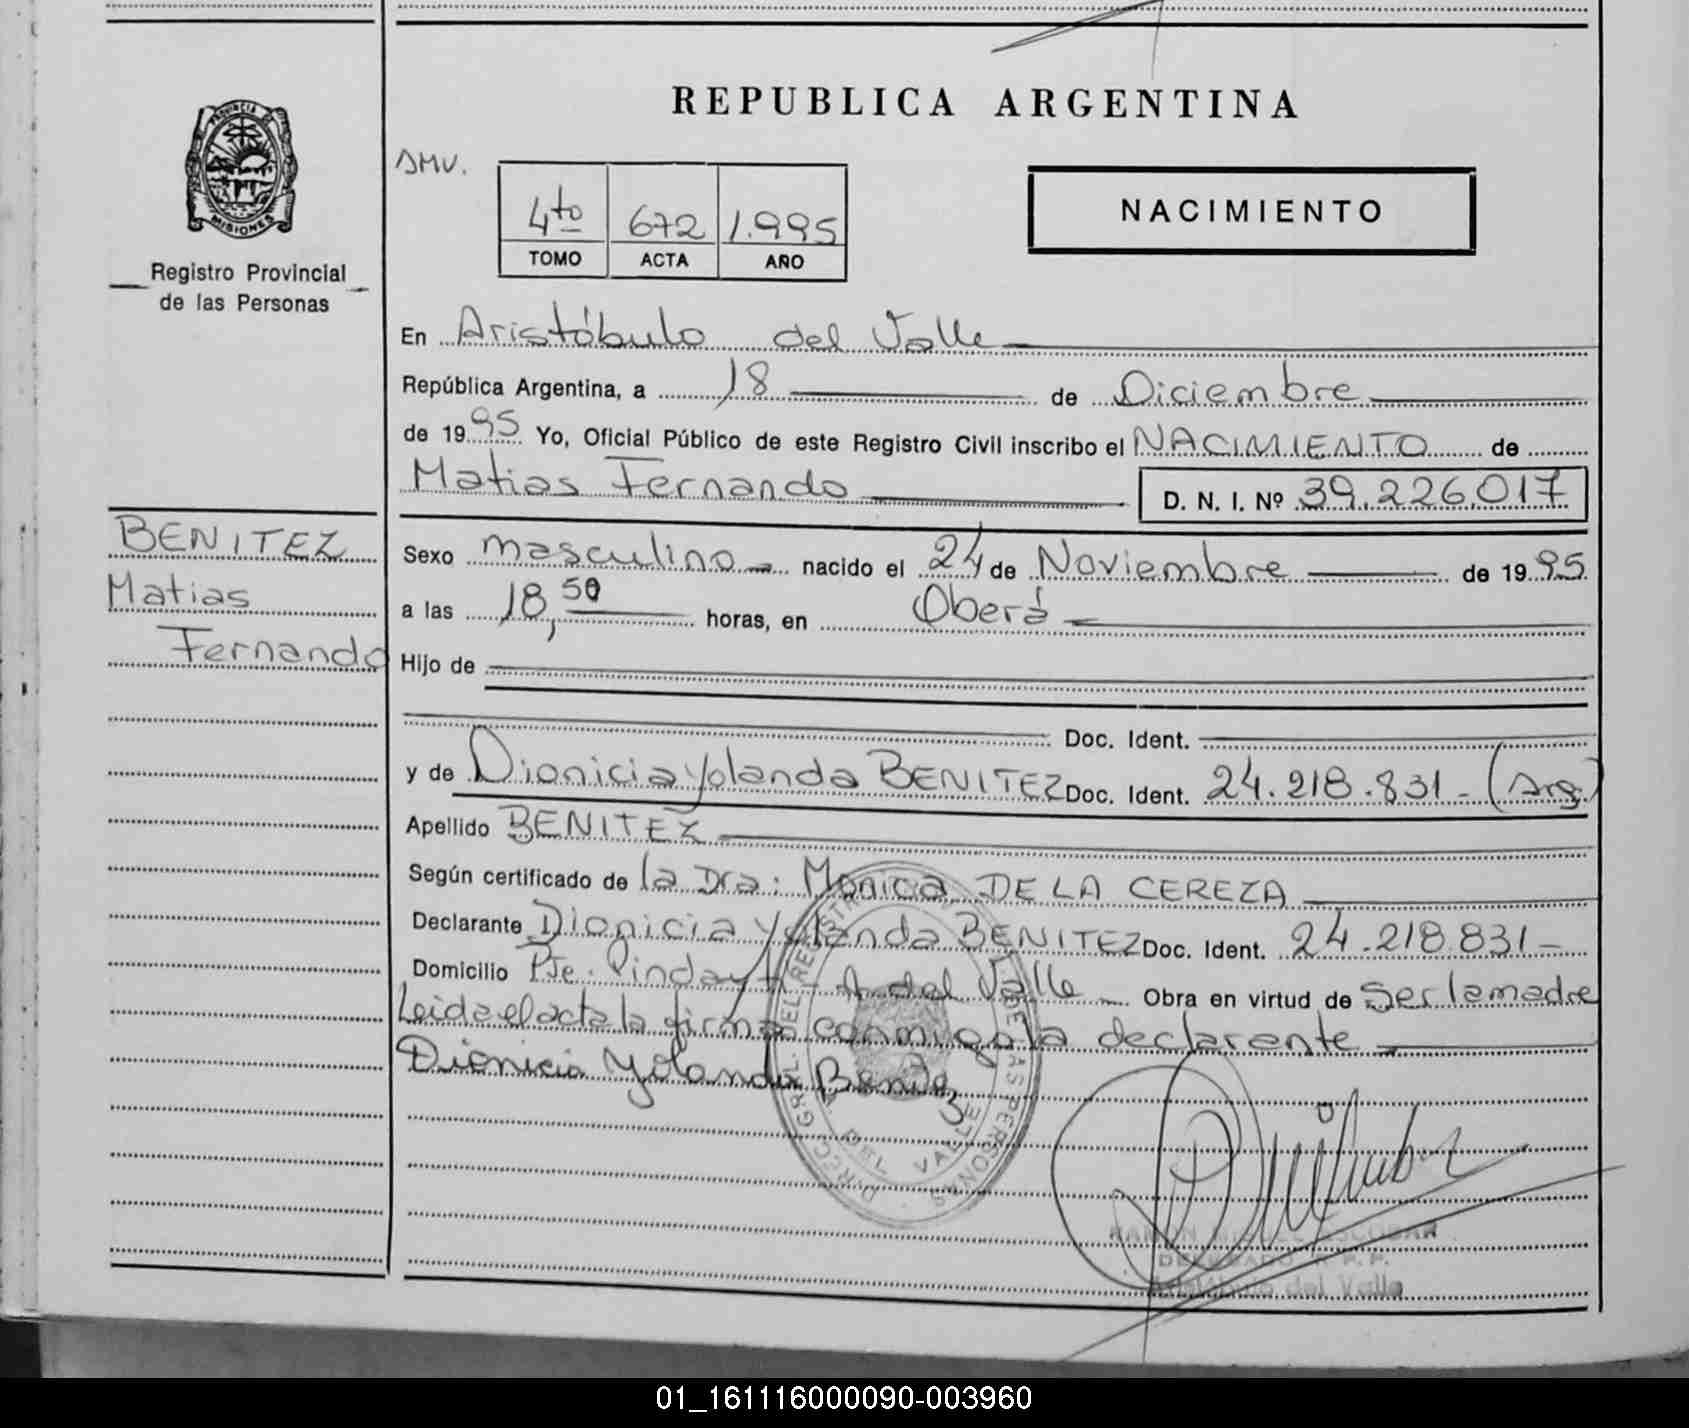 REPUBLICA ARGENTINA
PROVINCIA DE
MISIONES
Registro Provincial
de las Personas
DMV.
4to 672 1.995
TOMO ACTA AÑO
NACIMIENTO
En Aristóbulo del Valle
República Argentina, a 18 de Diciembre
de 1995 Yo, Oficial Público de este Registro Civil inscribo el NACIMIENTO de
Matias Fernando D. N. I. Nº 39.226.017
BENITEZ
Matias
Fernando
Sexo masculino nacido el 24 de Noviembre de 1995
a las 18,50 horas, en Oberá
Hijo de
Doc. Ident.
y de Dionicia Yolanda BENITEZ Doc. Ident. 24.218.831 - (Arg.)
Apellido BENITEZ
Según certificado de la Dra: Monica DE LA CEREZA
Declarante Dionicia Yolanda BENITEZ Doc. Ident. 24.218.831-
Domicilio Pje. Pindayti - A. del Valle Obra en virtud de Ser la madre
Leida el acta la firma conmigo la declarante
Dionicia Yolanda Benitez
DIRECC. GRAL. DEL REGISTRO DE LAS PERSONAS
DEL VALLE
RAMON MIGUEL ESCOBAR
DELEGADO R. P. P.
Aristóbulo del Valle
01_161116000090-003960